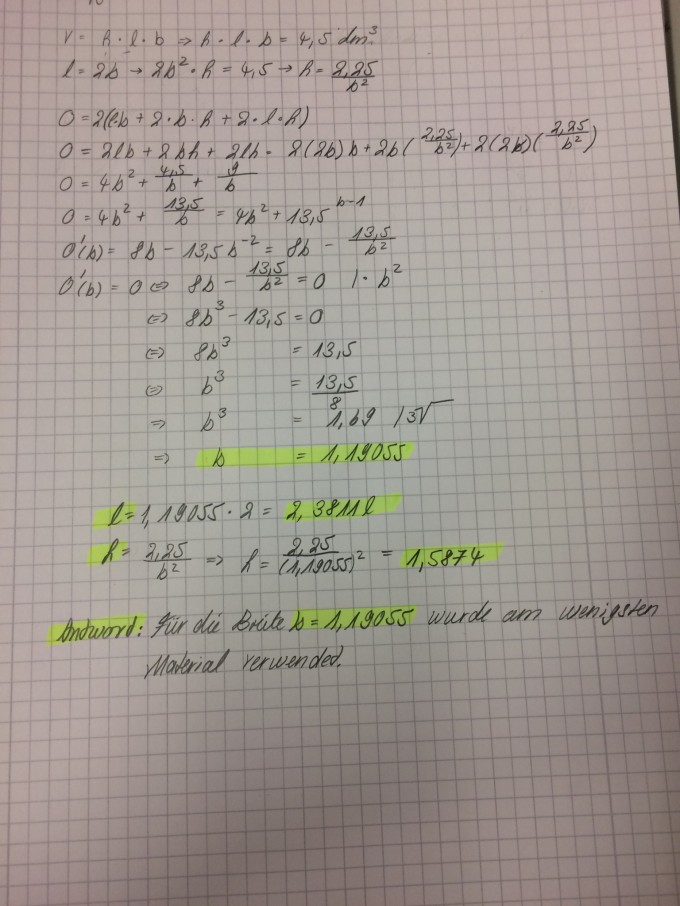 V = h · l · b ⇒ h · l · b = 4,5 dm³
l = 2b → 2b² · h = 4,5 → h = 2,25/b²
O = 2(l·b + 2·b·h + 2·l·h)
O = 2lb + 2bh + 2lh = 2(2b)b + 2b(2,25/b²) + 2(2b)(2,25/b²)
O = 4b² + 4,5/b + 9/b
O = 4b² + 13,5/b = 4b² + 13,5^b-1
O'(b) = 8b - 13,5b⁻² = 8b - 13,5/b²
O'(b) = 0 ⇔ 8b - 13,5/b² = 0 | · b²
⇔ 8b³ - 13,5 = 0
⇔ 8b³ = 13,5
⇔ b³ = 13,5/8
⇒ b³ = 1,69 | 3√
⇒ b = 1,19055
l = 1,19055 · 2 = 2,3811l
h = 2,25/b² ⇒ h = 2,25/(1,19055)² = 1,5874
Antword: Für die Breite b = 1,19055 wurde am wenigsten
Material verwended.